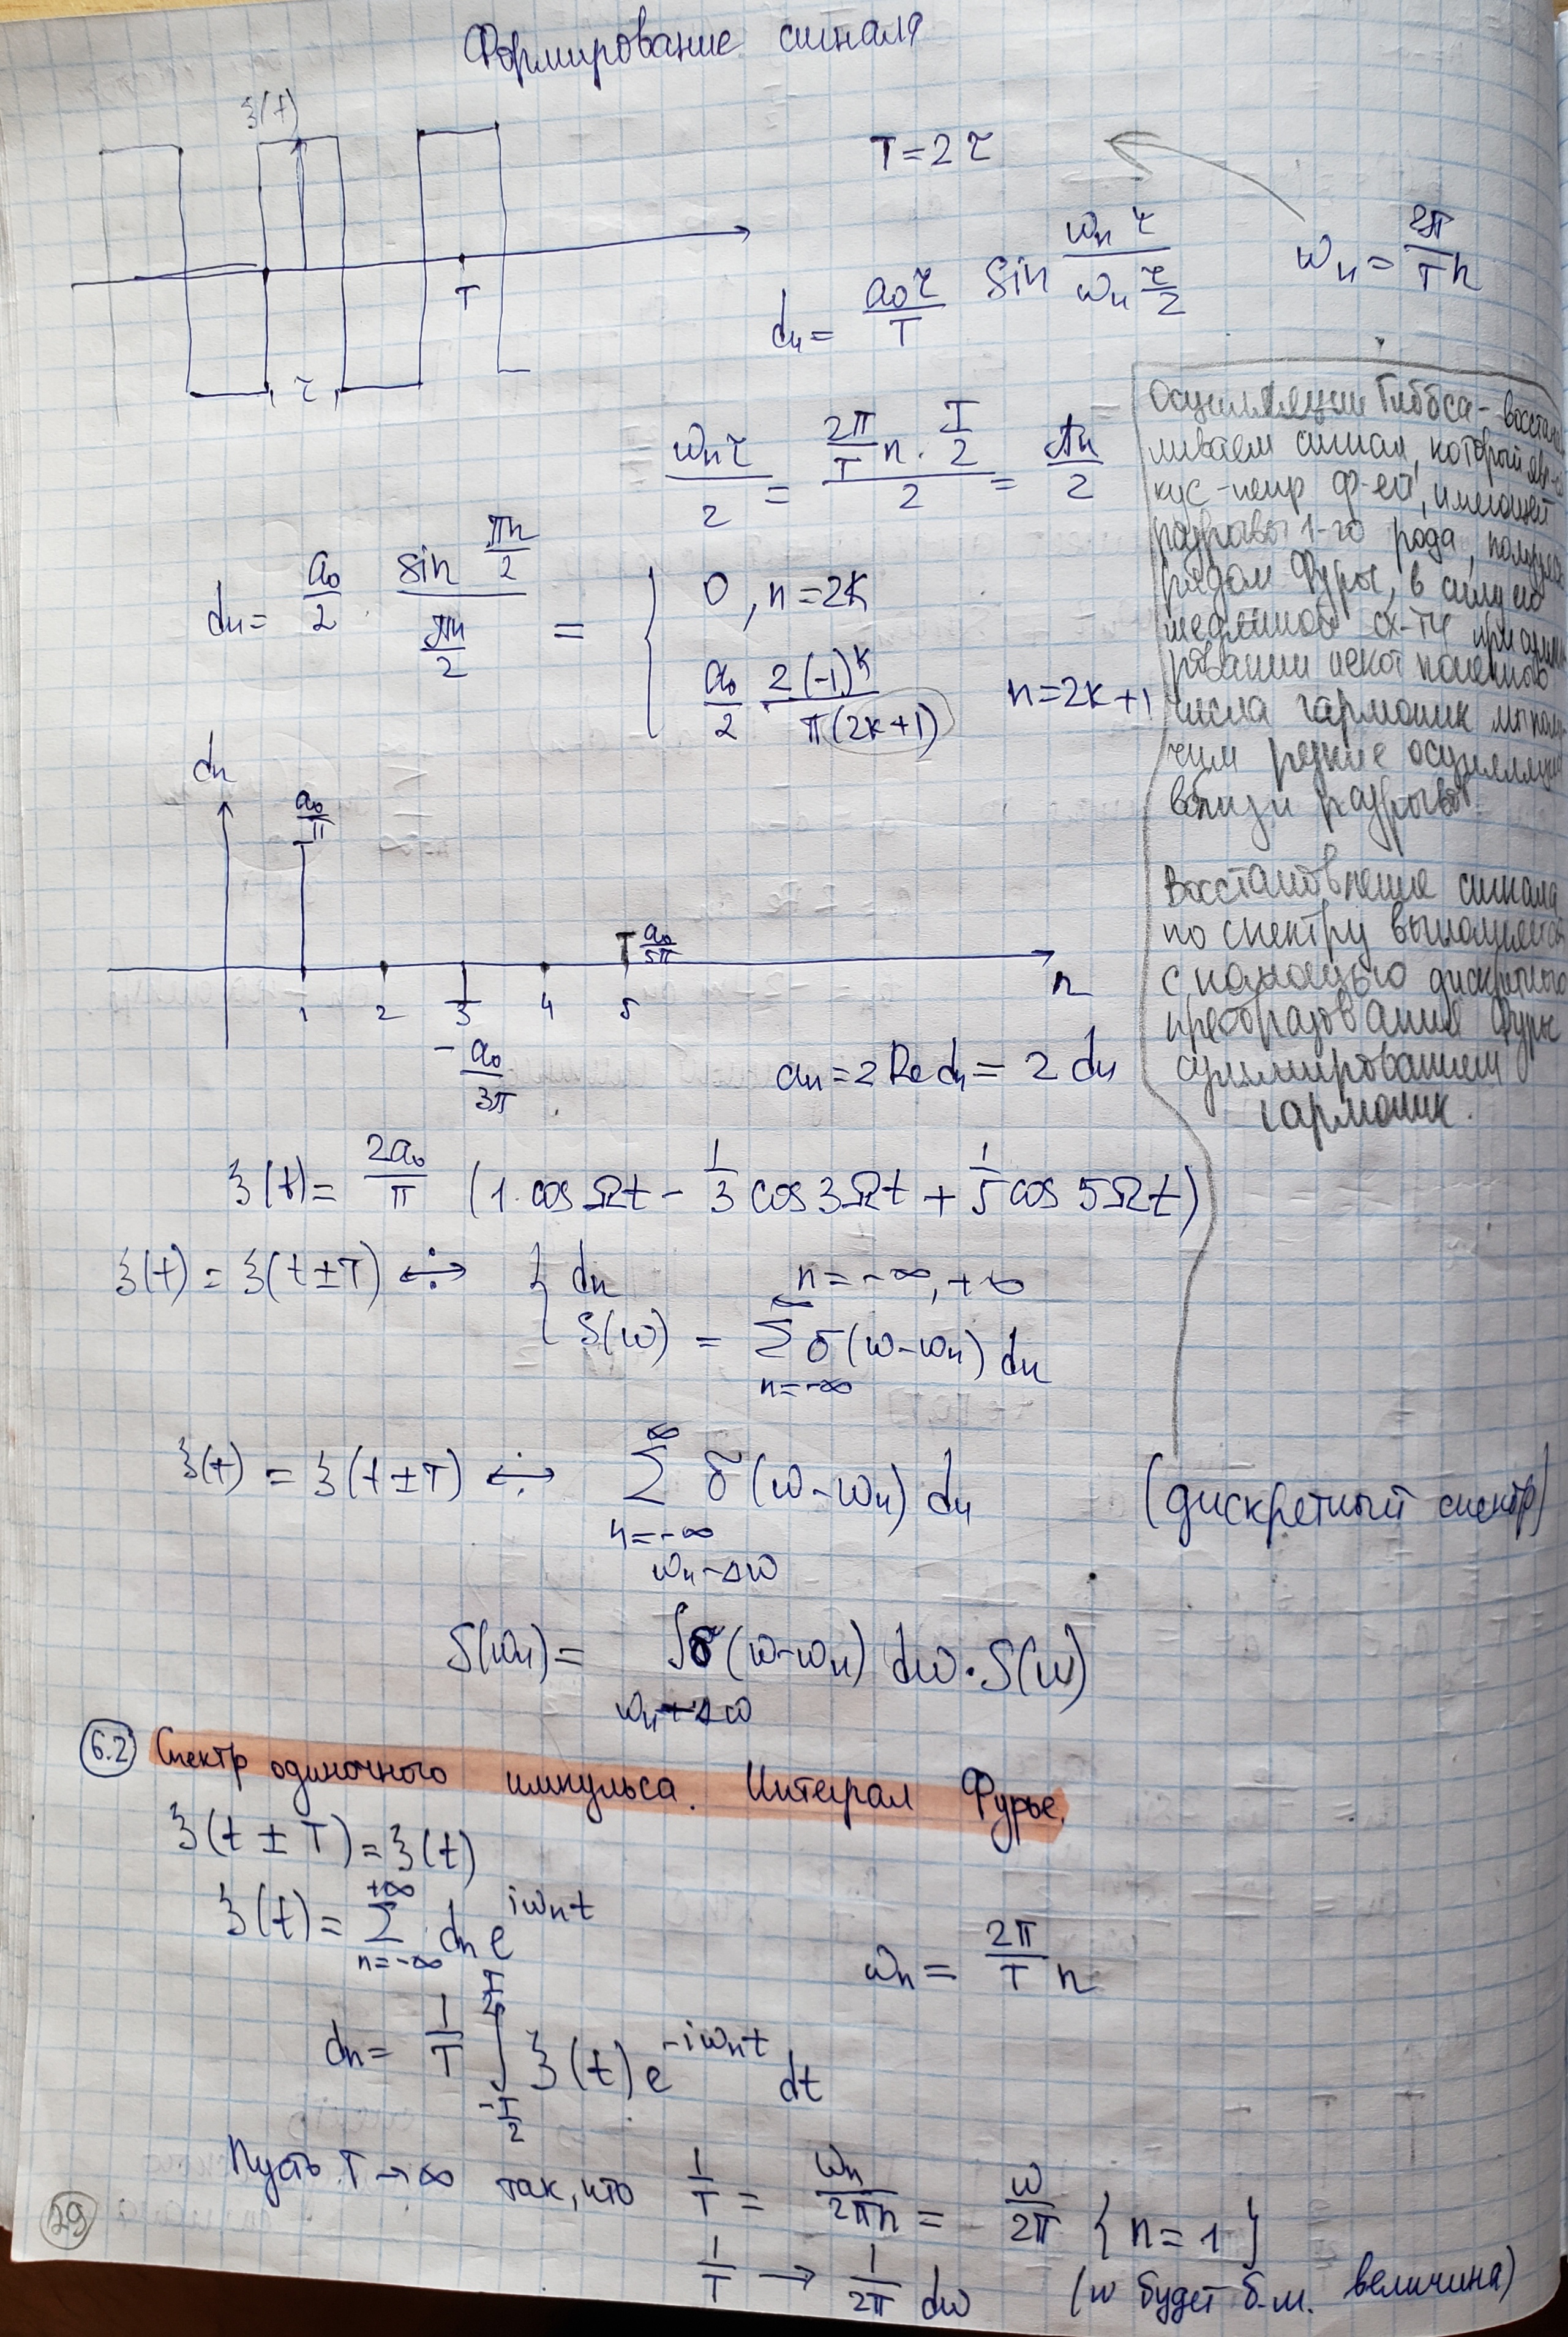 Формирование сигнала
ξ(t)
T = 2τ
T
τ
dₙ = a₀τ/T sin ωₙτ / ωₙ τ/2
ωₙ = 2π/T n
ωₙτ/2 = (2π/T n · T/2)/2 = πn/2
dₙ = a₀/2 · sin πn/2 / πn/2 = { 0, n=2k
a₀/2 2(-1)ᵏ/π(2k+1) n=2k+1
Осцилляции Гиббса -
ливаем сигнал, который явл-ся
кус-непр ф-ей, имеющей
разрывы 1-го рода,
рядом Фурье, в силу
медленной сх-ти при
ровании
числа гармоник мы
чим резкие осцилляции
вблизи разрывов.
Восстановление сигнала
по спектру выполняется
с помощью дискретного
преобразования Фурье
суммированием
гармоник.
dₙ
a₀/π
a₀/5π
1 2 3 4 5 n
- a₀/3π
aₙ = 2 Re dₙ = 2 dₙ
ξ(t) = 2a₀/π (1·cos Ωt - 1/3 cos 3Ωt + 1/5 cos 5Ωt)
ξ(t) = ξ(t±T) ∻↔ { dₙ n = -∞, +∞
S(ω) = ∞ Σ n=-∞ δ(ω-ωₙ) dₙ
ξ(t) = ξ(t±T) ↔ ∞ Σ n=-∞ δ(ω-ωₙ) dₙ (дискретный спектр)
S(ωₙ) = ωₙ-Δω ∫ ωₙ+Δω δ(ω-ωₙ) dω·S(ω)
6.2 Спектр одиночного импульса. Интеграл Фурье.
ξ(t±T) = ξ(t)
ξ(t) = +∞ Σ n=-∞ dₙ e^{iωₙt} ωₙ = 2π/T n
dₙ = 1/T ∫_{-T/2}^{T/2} ξ(t) e^{-iωₙt} dt
Пусть T→∞ так, что 1/T = ωₙ/2πn = ω/2π {n=1}
1/T → 1/2π dω (ω будет б.м. величина)
29